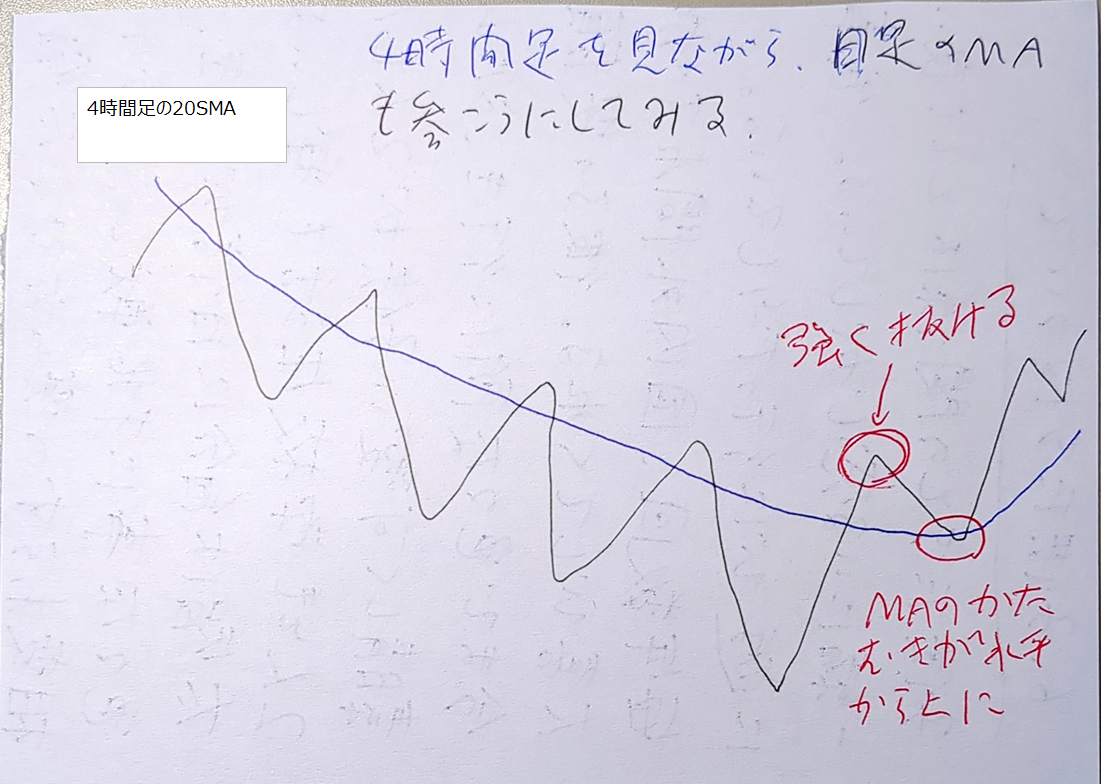 4時間足を見ながら、日足のMA
も参こうにしてみる.
4時間足の20SMA
強く抜ける
MAのかた
むきが水平
から上に